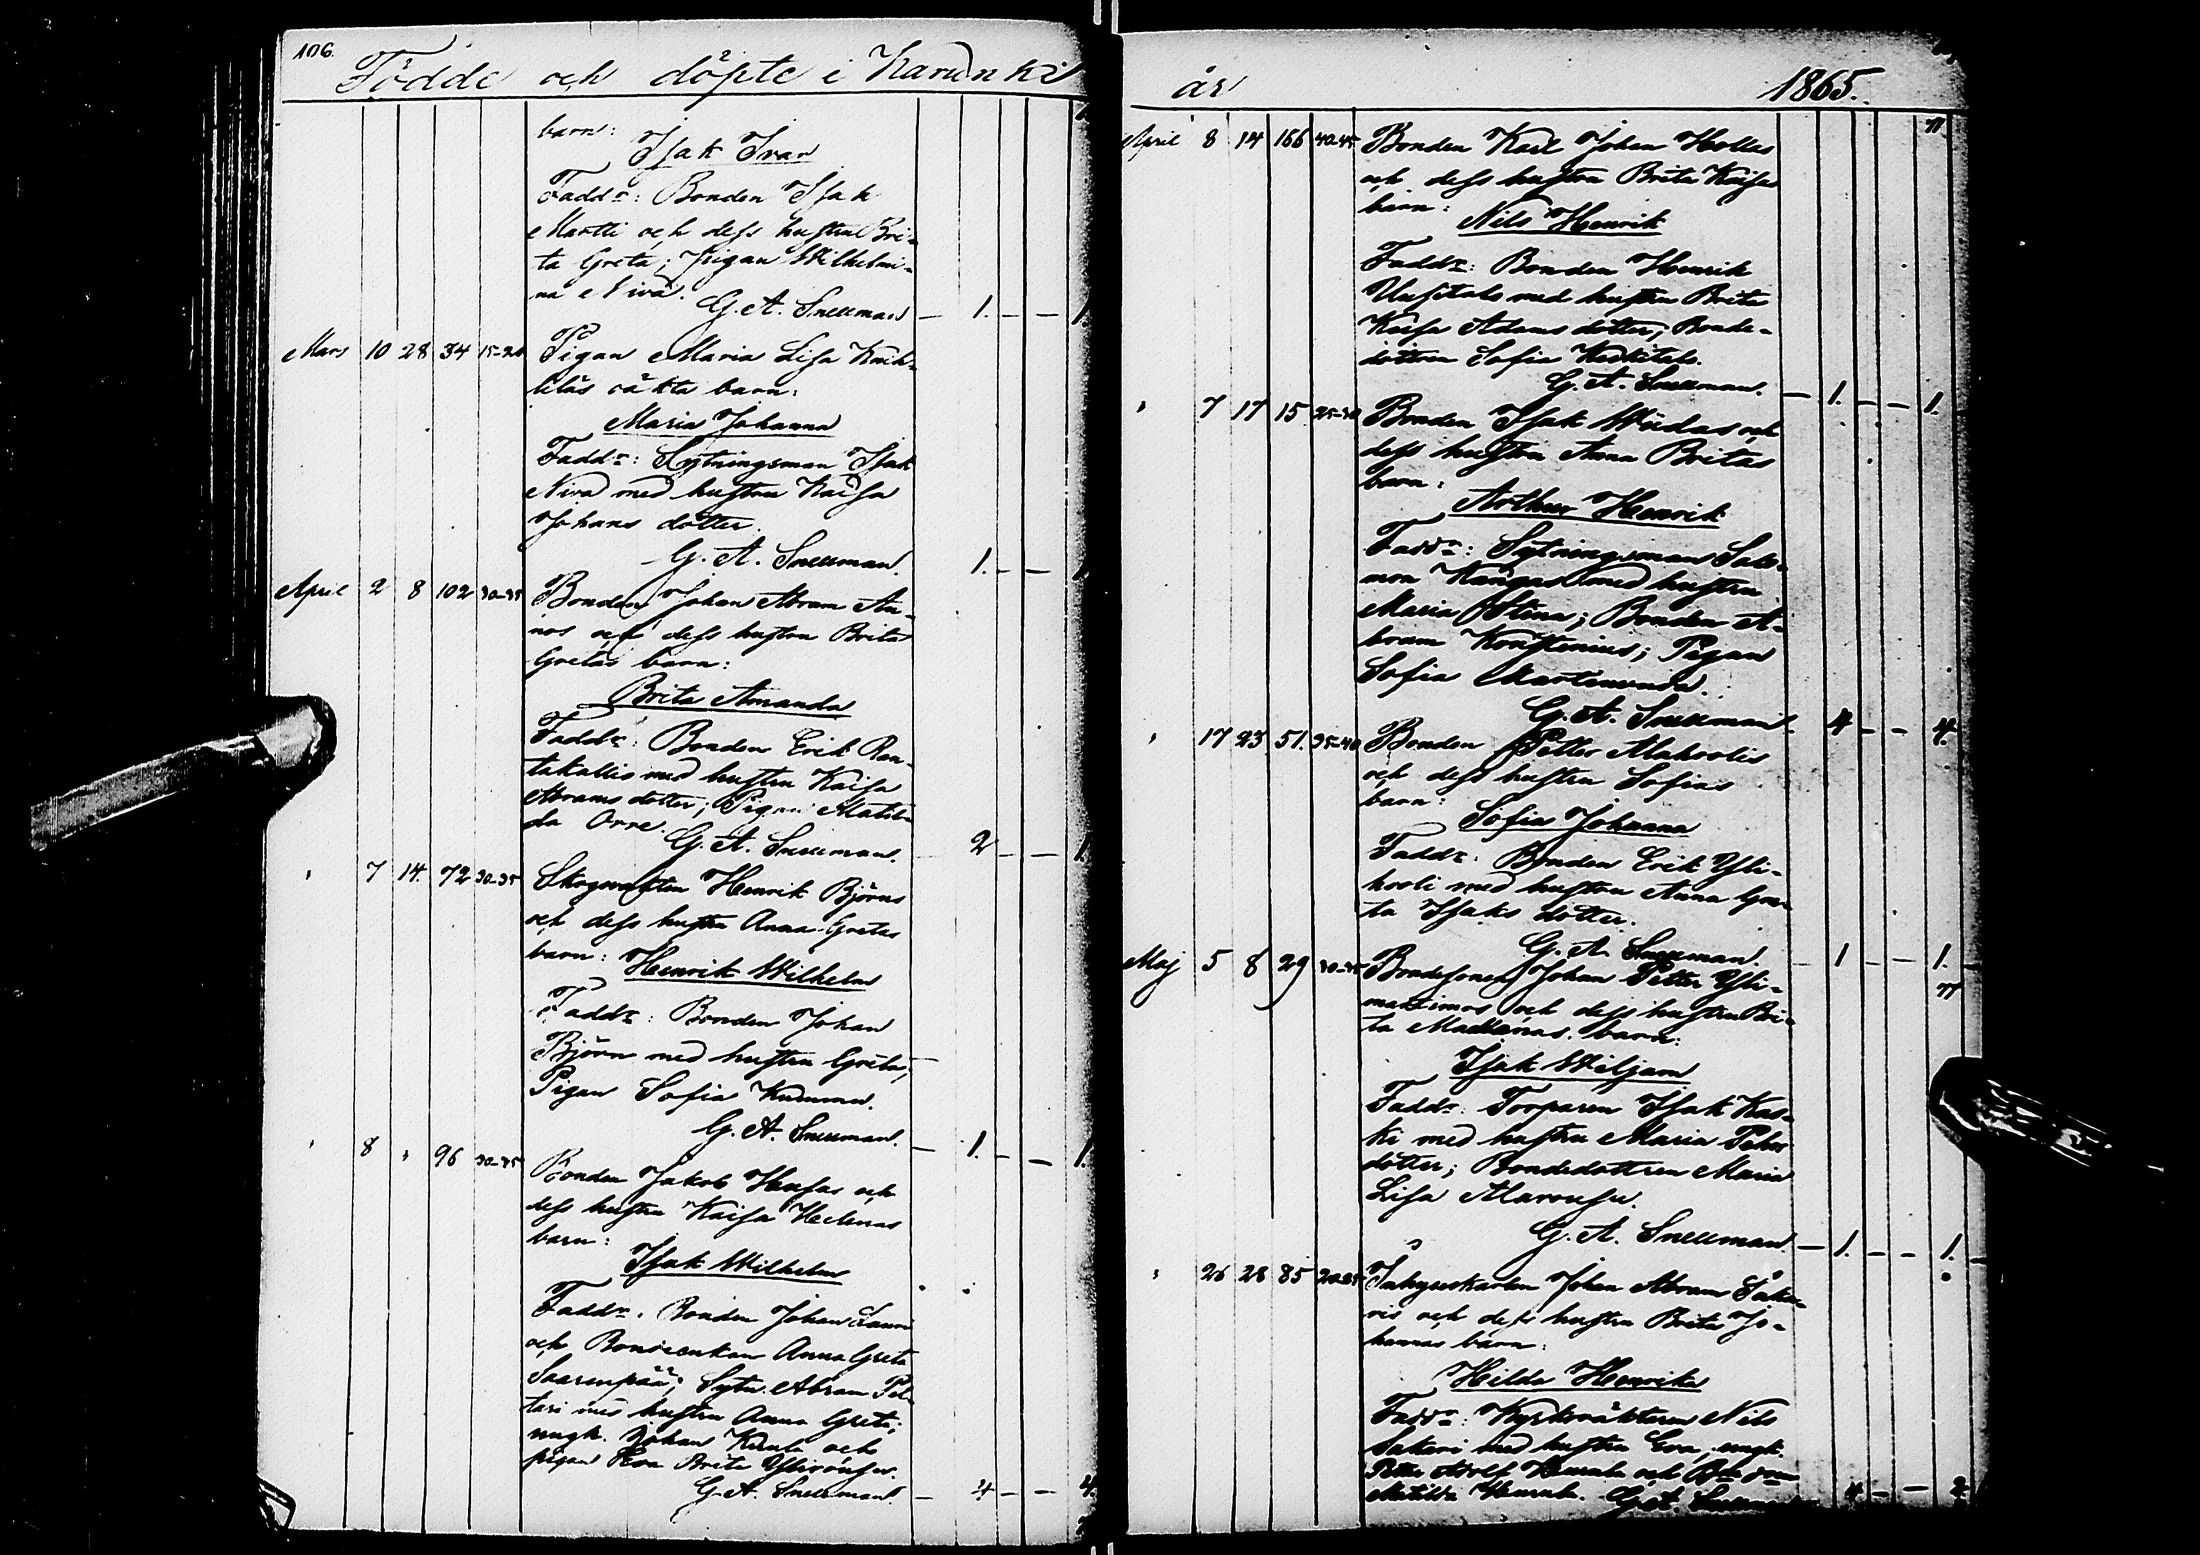 106.
Födde och döpte i Karunki
barn:
Isak Ivar
Fadd:r: Bonden Isak
Martti och dess hustru Bri-
ta Greta; Pigan Wilhelmi-
na Niva.
G. A. Snellman — 1. — — 1
Mars 10 28 34 15-20 Pigan Maria Lisa
oäkta barn:
Maria Johanna
Fadd:r: Sytningsman Isak
Niva med hustru Kaisa
Johans dotter.
G. A. Snellman. 1. — —
April 2 8 102 30-35 Bonden Johan Abram An-
nos och dess hustru Brita
Gretas barn:
Brita Amanda
Fadd:r: Bonden Erik Ran-
takallio med hustru Kaisa
Abrams dotter; Pigan Matil-
da Orre.
G. A. Snellman. 2 — — 1
" 7 14. 72 30-35 Skogvaktaren Henrik Björns
och dess hustru Anna Gretas
barn: Henrik Wilhelm
Fadd:r: Bonden Johan
Björn med hustru Greta;
Pigan Sofia
G. A. Snellman. — 1. — — 1.
" 8 " 96 30-35 Bonden Jakob och
dess hustru Kaisa Helenas
barn:
Isak Wilhelm
Fadd:r: Bonden Johan Lauri
och Bondeenkan Anna Greta
Saarenpää; Sytn. Abram Pel-
tari med hustru Anna Greta;
ungk. Johan och
pigan Eva Brita
G. A. Snellman. — 4. — — 4.
år 1865.
April 8 14 166 40-45 Bonden Karl Johan
och dess hustru Brita Kaisas
barn:
Nils Henrik
Fadd:r: Bonden Henrik
Uusitalo med hustru Brita
Kaisa Adams dotter; Bonde-
dottren Sofia Keskitalo.
G. A. Snellman. — 1. — — 1.
" 7 17 15 25-30 Bonden Isak och
dess hustru Anna Britas
barn:
Arthur Henrik
Fadd:r: Sytningsman Salo-
mon Kangas med hustru
Maria Stina; Bonden A-
bram Konstenius; Pigan
Sofia
G. A. Snellman. 4 — — 4.
" 17 23 51. 35-40 Bonden Petter Alakoolis
och dess hustru Sofias
barn:
Sofia Johanna
Fadd:r: Bonden Erik Yli-
kooli med hustru Anna Gre-
ta Isaks dotter.
G. A. Snellman. — 1 — — 1.
Maj 5 8 29 30-35 Bondesonen Johan Petter Yli-
martimos och dess hustru Bri-
ta Madlenas barn:
Isak Wiljam
Fadd:r: Torparen Isak Kas-
ki med hustru Maria Pehrs
dotter; Bondedottren Maria
Lisa Alarousu.
G. A. Snellman. — 1. — — 1.
" 26 28 85 20-25 Johan Abram Saka-
ris och dess hustru Brita Jo-
hannas barn:
Hilda Henrika
Fadd:r: Kyrkväktaren Nils
Sakari med hustru Eva; ungk.
Petter Adolf och
Matilda G. A. Snellman 4 — — 2.